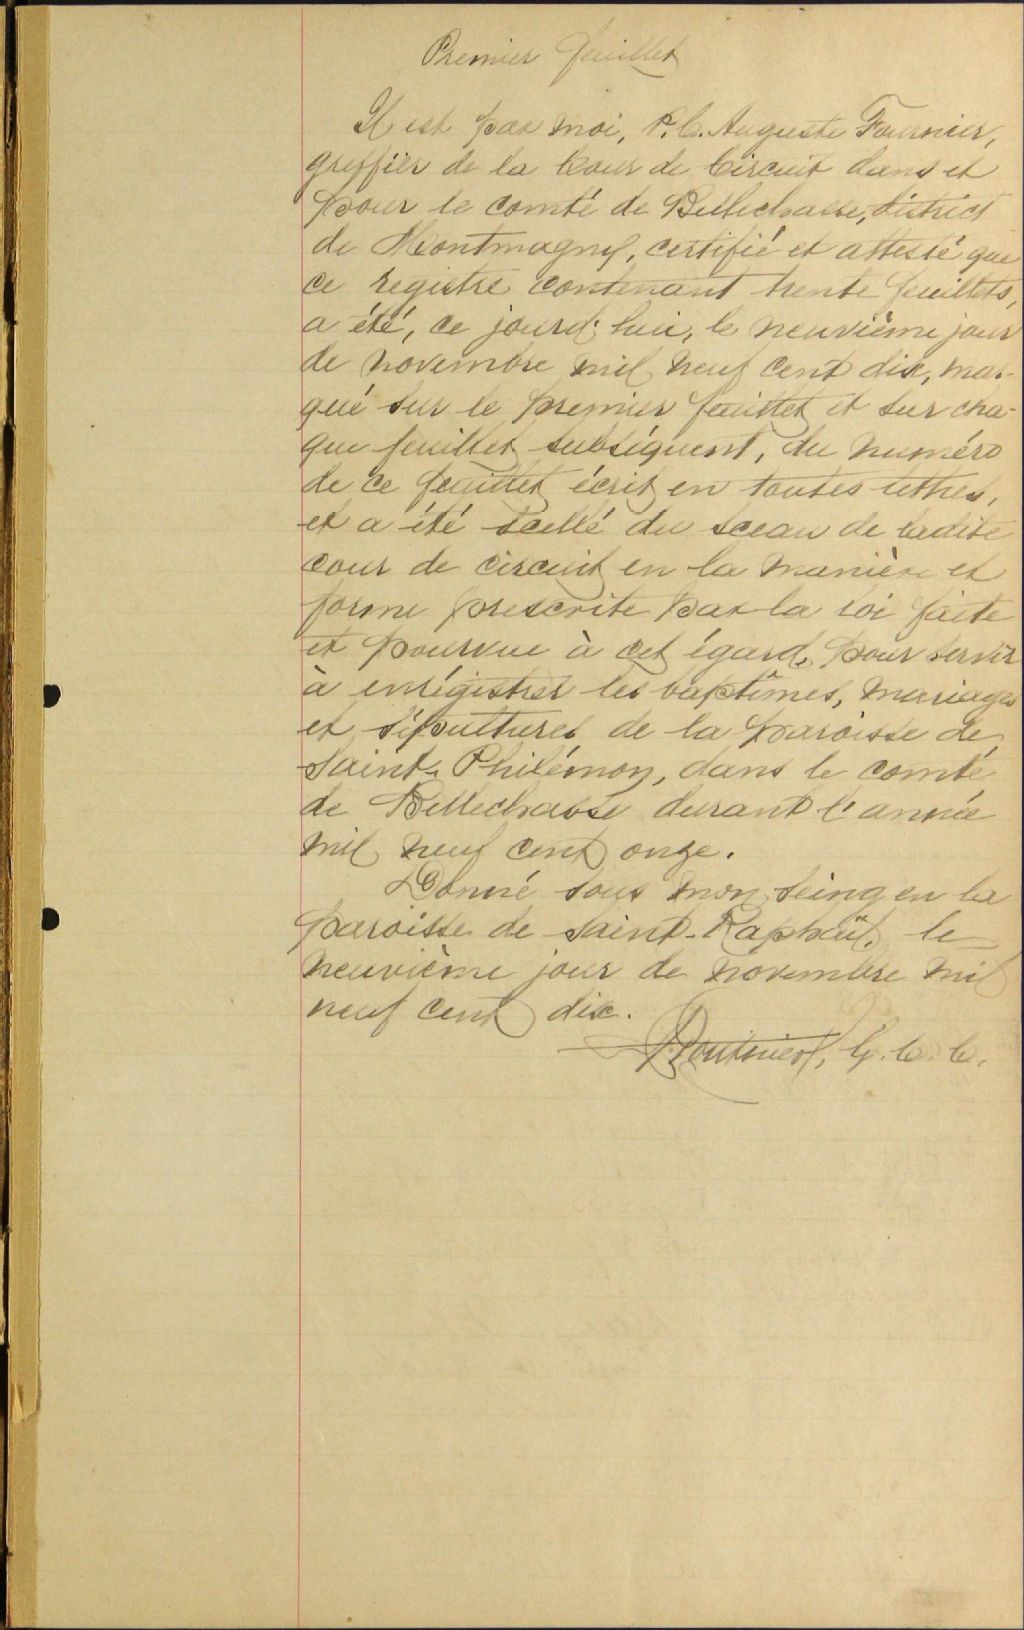 Premier feuillet
Il est par moi, P. C. Auguste Fournier,
greffier de la Cour de Circuit dans et
pour le comté de Bellechasse, district
de Montmagny, certifié et attesté que
ce registre contenant trente feuillets,
a été, ce jourd'hui, le neuvième jour
de novembre mil neuf cent dix, mar-
qué sur le premier feuillet et sur cha-
que feuillet subséquent, du numéro
de ce feuillet écrit en toutes lettres,
et a été scellé du sceau de ladite
cour de circuit en la manière et
forme prescrite par la loi faite
et pourvue à cet égard, pour servir
à enrégistrer les baptêmes, mariages
et sépultures de la paroisse de
Saint-Philémon, dans le comté
de Bellechasse durant l'année
mil neuf cent onze.
Donné sous mon seing en la
paroisse de Saint-Raphaël, le
neuvième jour de novembre mil
neuf cent dix.
Fournier, G. C. C.